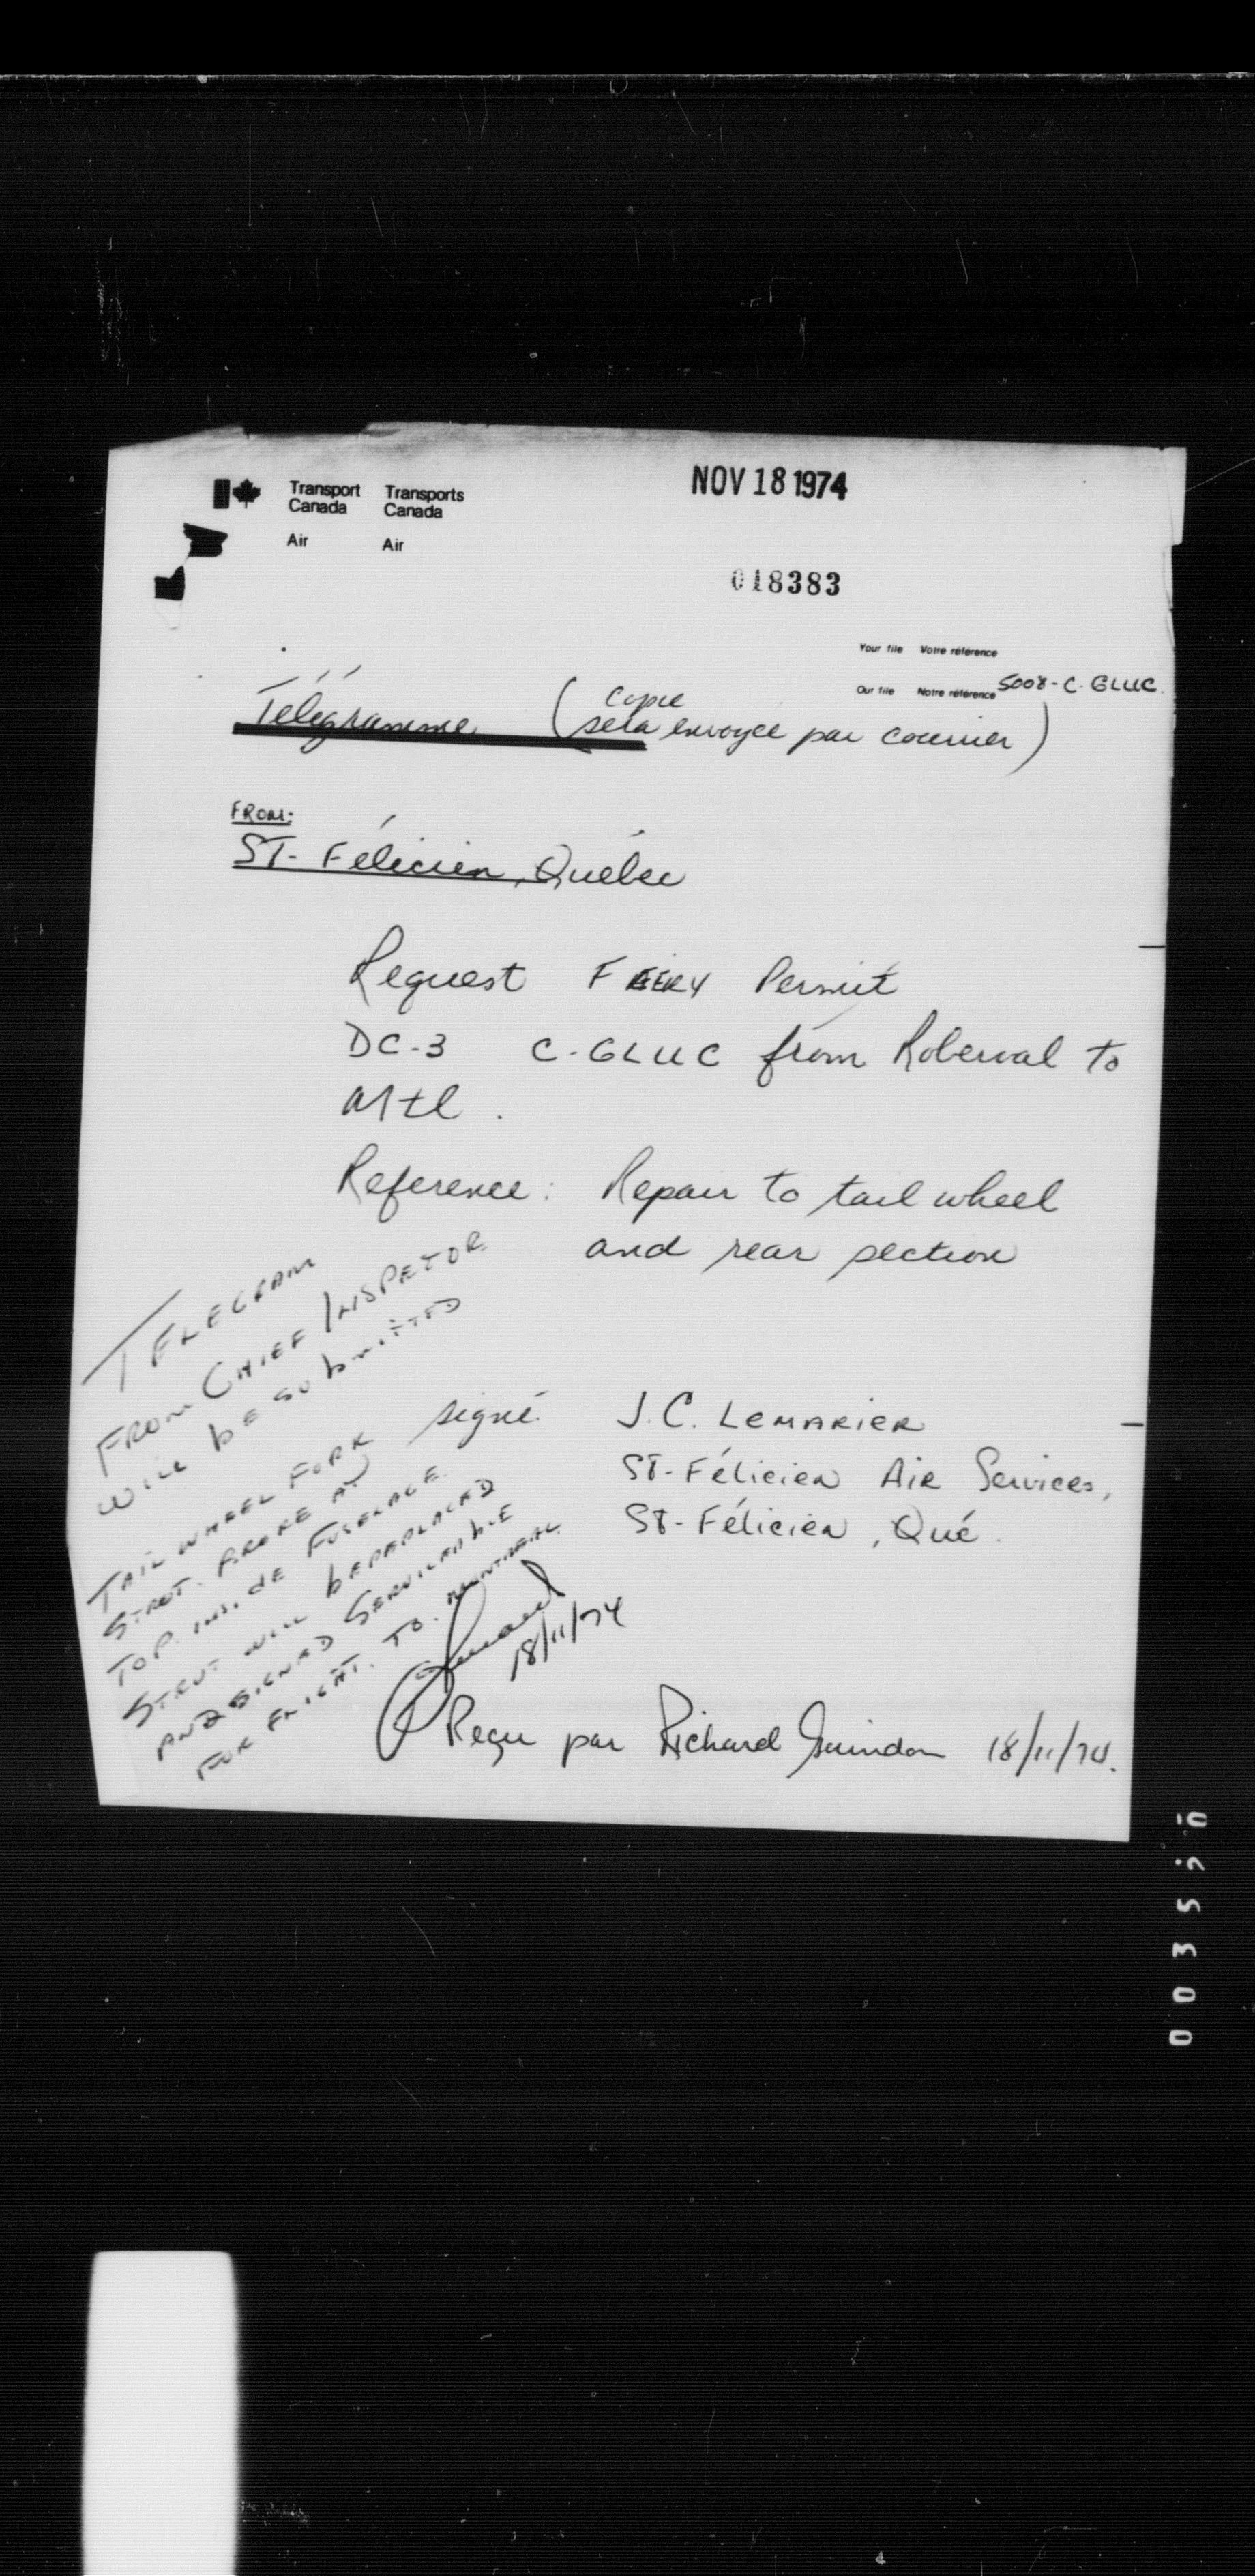 NOV 18 1974
Transport Canada
Transports Canada
Air
Air
018383
Your file Votre référence
Our file Notre référence 5008-C-GLUC
Télégramme (Copie sera envoyée par courrier)
FROM:
ST-Félicien, Québec
Request FERRY Permit
DC-3 C-GLUC from Roberval to
Mtl.
Reference: Repair to tail wheel
and rear section
TELEGRAM
FROM CHIEF INSPETOR
WILL BE SUBMITTED
signé J.C. LEMARIER
ST-Félicien Air Services,
ST-Félicien, Qué.
TAIL WHEEL FORK
STRUT. BROKE AT
TOP. INSIDE FUSELAGE.
STRUT WILL BE REPLACED
AND SIGNED SERVICEABLE
FOR FLIGHT. TO. MONTREAL.
18/11/74
Reçu par Richard Guindon 18/11/74.